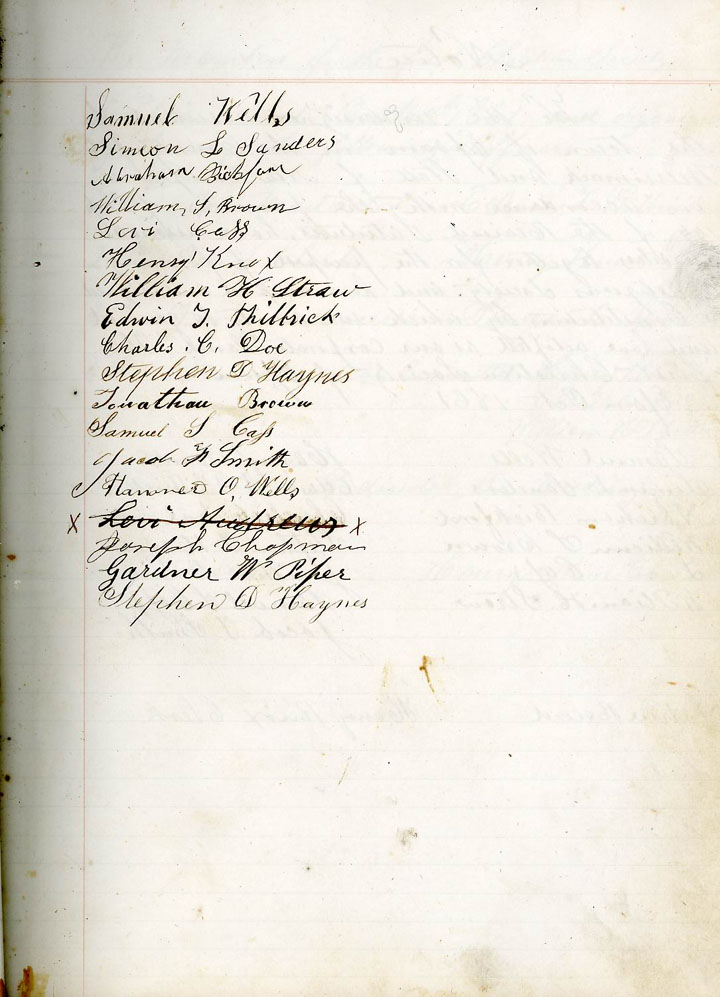 Samuel Wells
Simeon L Sanders
Abraham Bickford
William S, Brown
Levi Cass
Henry Knox
William H Straw
Edwin T. Philbrick
Charles. C. Doe
Stephen D Haynes
Jonathan Brown
Samuel S Cass
Jacob F Smith
O, Wells
X Levi Andrews X
Joseph Chapman
Gardner W Piper
Stephen D Haynes